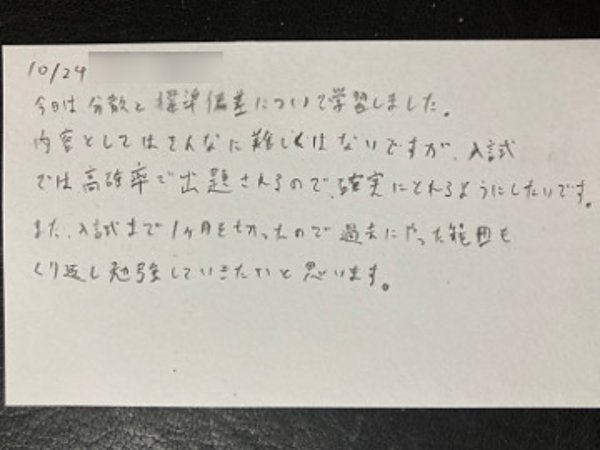 10/24
今日は分散と標準偏差について学習しました。
内容としてはそんなに難しくはないですが、入試
では高確率で出題されるので、確実にとれるようにしたいです。
また、入試まで1ヶ月をきったので過去にやった範囲も
くり返し勉強していきたいと思います。